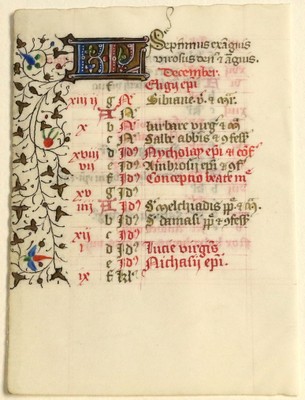 KL Septimus exãguis
virosus den9 et ãguis.
December.
f Eligii epi
xiii g N Bibiane .v. & mr.
A N
x b N Barbare virg & m
c N Sabe abbis & 9fess
xviii d N Nycholay epi & cof
vii e Id Ambrosii epi & 9f
f Id Conceptio beate m
xv g Id
iiii A Id S melchiadis pp & m.
b Id S damasi pp & 9fess
xii c Id
i d Id Lucie virgis
e Id Nichasii epi.
ix f kl.